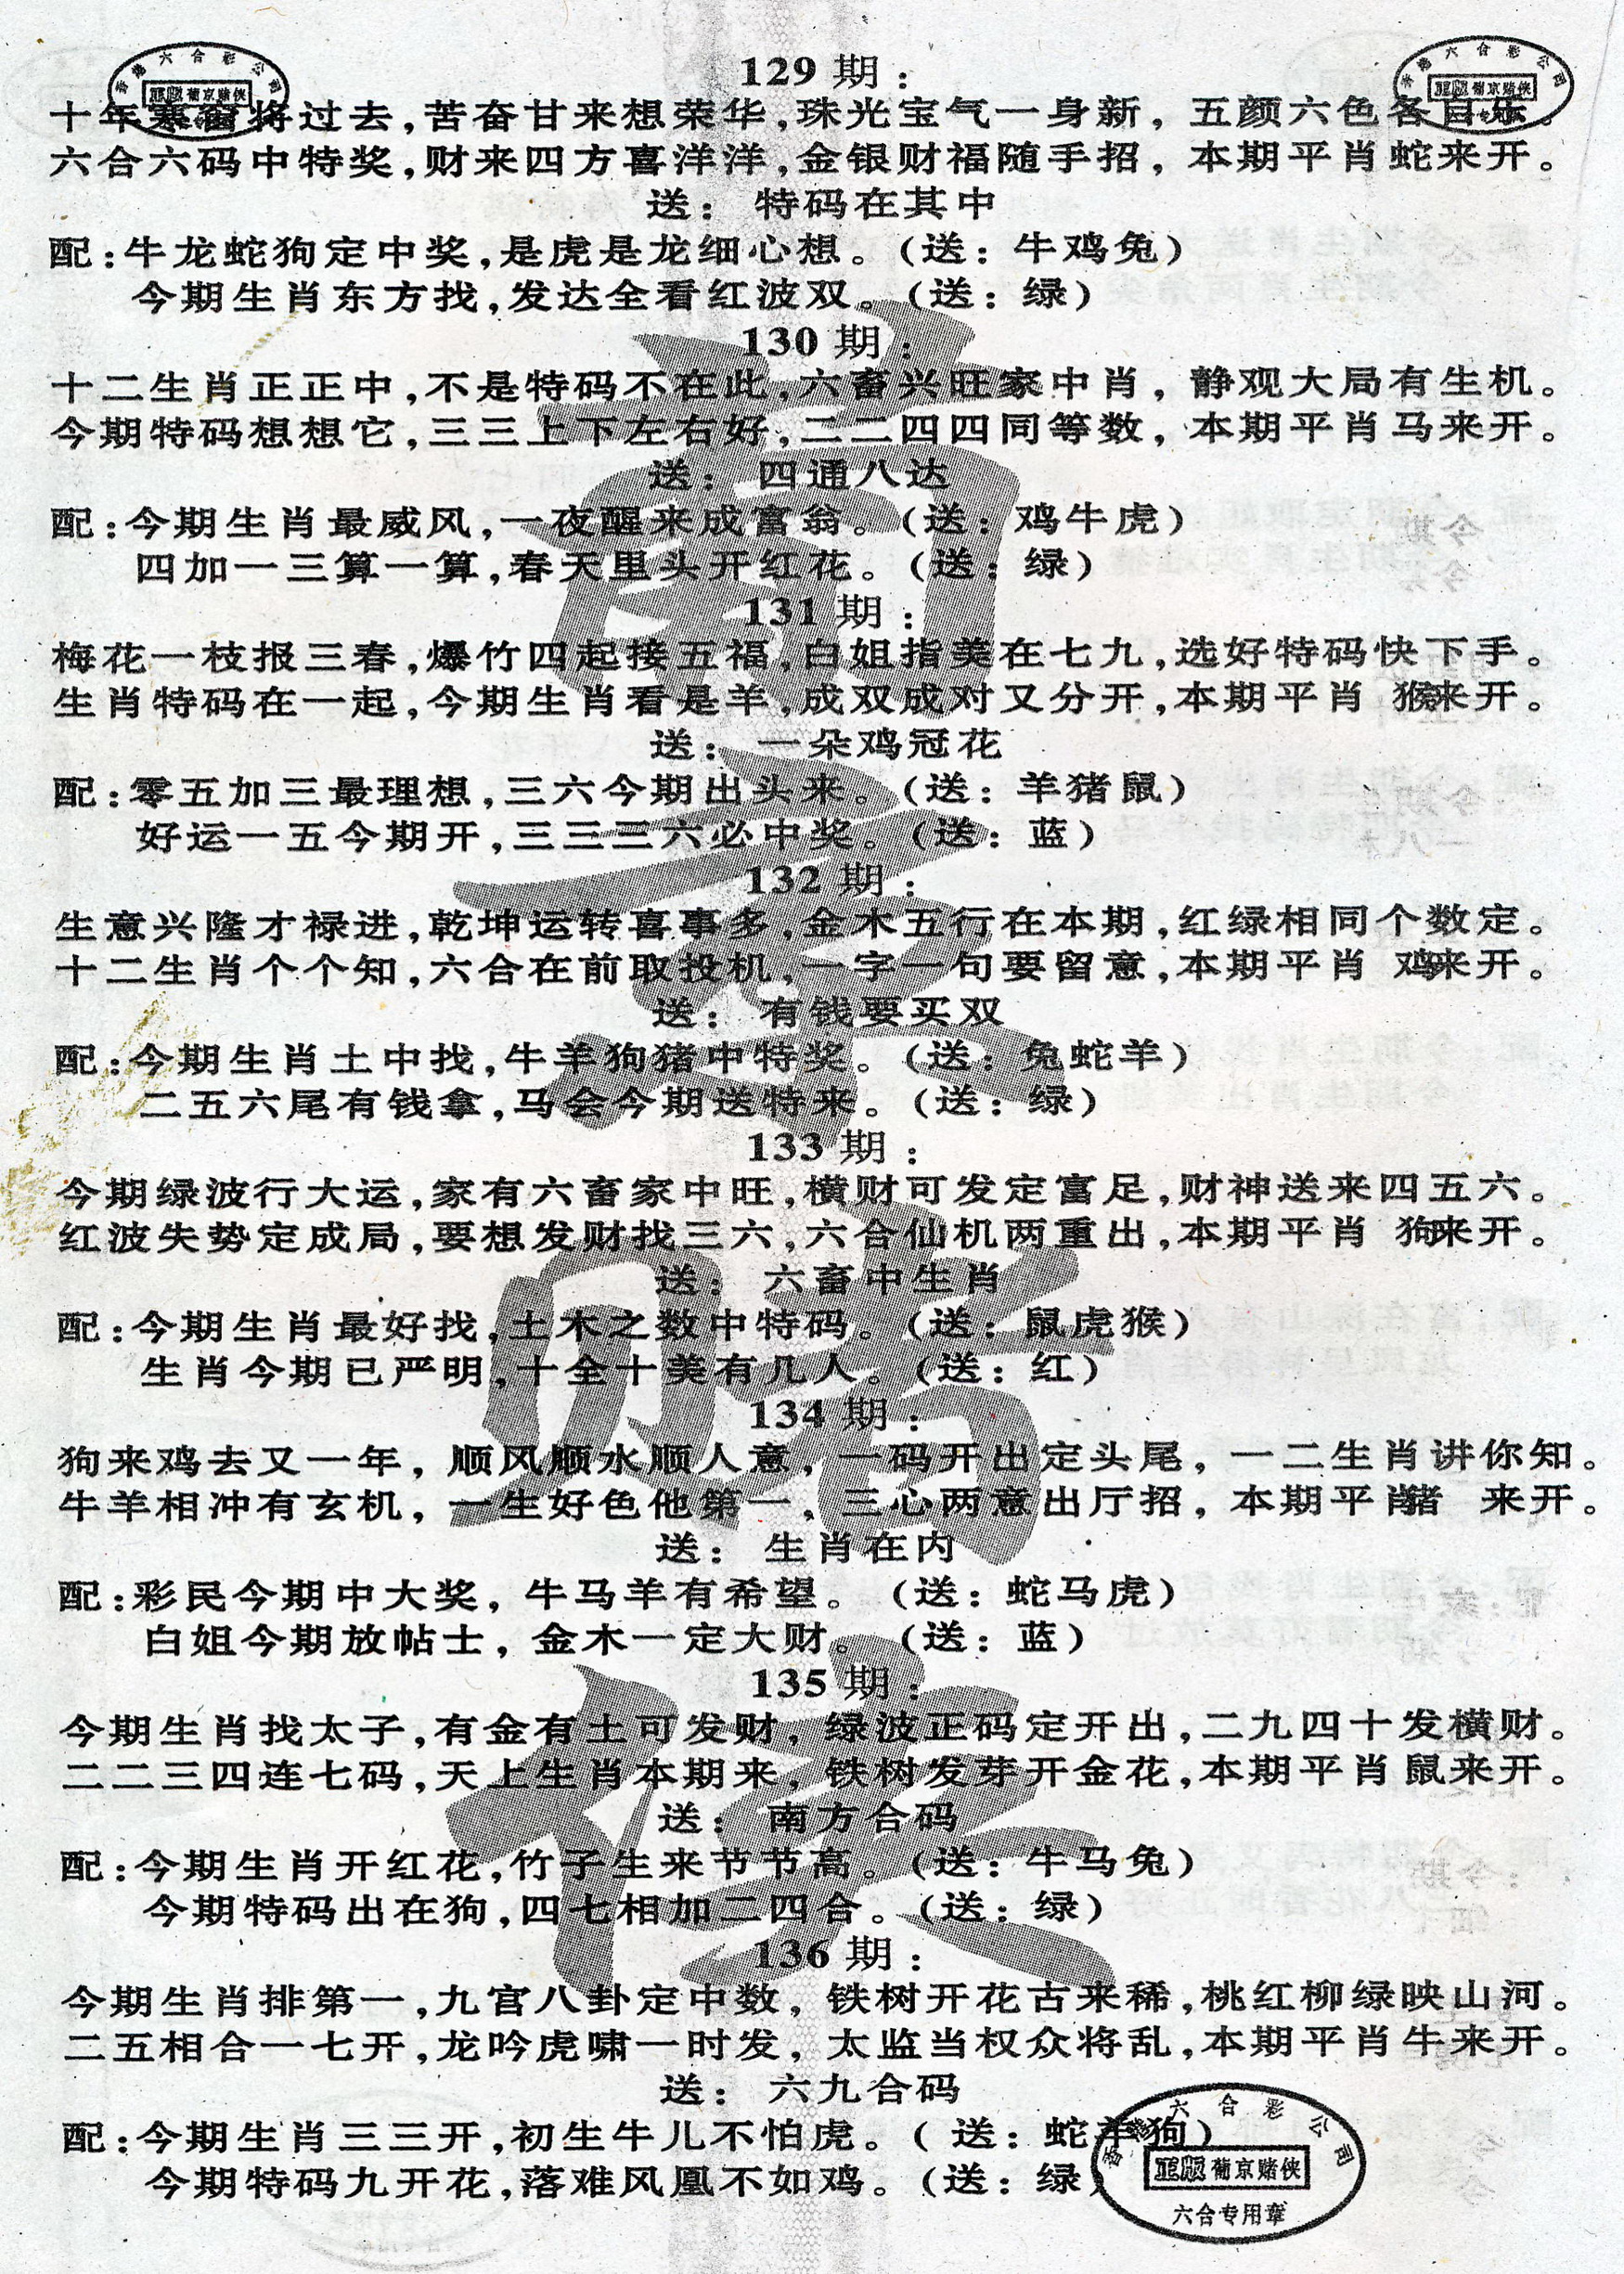 129期：
十年寒窗将过去,苦奋甘来想荣华,珠光宝气一身新,五颜六色各自乐。
六合六码中特奖,财来四方喜洋洋,金银财福随手招,本期平肖蛇来开。
送：特码在其中
配:牛龙蛇狗定中奖,是虎是龙细心想。(送：牛鸡兔)
今期生肖东方找,发达全看红波双。(送：绿)
130期：
十二生肖正正中,不是特码不在此,六畜兴旺家中肖,静观大局有生机。
今期特码想想它,三三上下左右好,二二四四同等数,本期平肖马来开。
送：四通八达
配:今期生肖最威风,一夜醒来成富翁。(送：鸡牛虎)
四加一三算一算,春天里头开红花。(送：绿)
131期：
梅花一枝报三春,爆竹四起接五福,白姐指美在七九,选好特码快下手。
生肖特码在一起,今期生肖看是羊,成双成对又分开,本期平肖 猴来开。
送：一朵鸡冠花
配:零五加三最理想,三六今期出头来。(送：羊猪鼠)
好运一五今期开,三三三六必中奖。(送：蓝)
132期：
生意兴隆才禄进,乾坤运转喜事多,金木五行在本期,红绿相同个数定。
十二生肖个个知,六合在前取投机,一字一句要留意,本期平肖 鸡来开。
送：有钱要买双
配:今期生肖土中找,牛羊狗猪中特奖。(送：兔蛇羊)
二五六尾有钱拿,马会今期送特来。(送：绿)
133期：
今期绿波行大运,家有六畜家中旺,横财可发定富足,财神送来四五六。
红波失势定成局,要想发财找三六,六合仙机两重出,本期平肖 狗来开。
送：六畜中生肖
配:今期生肖最好找,土木之数中特码。(送：鼠虎猴)
生肖今期已严明,十全十美有几人。(送：红)
134期：
狗来鸡去又一年,顺风顺水顺人意,一码开出定头尾,一二生肖讲你知。
牛羊相冲有玄机,一生好色他第一,三心两意出厅招,本期平肖猪 来开。
送：生肖在内
配:彩民今期中大奖,牛马羊有希望。(送：蛇马虎)
白姐今期放帖士,金木一定大财。(送：蓝)
135期：
今期生肖找太子,有金有土可发财,绿波正码定开出,二九四十发横财。
二二三四连七码,天上生肖本期来,铁树发芽开金花,本期平肖鼠来开。
送：南方合码
配:今期生肖开红花,竹子生来节节高。(送：牛马兔)
今期特码出在狗,四七相加二四合。(送：绿)
136期：
今期生肖排第一,九官八卦定中数,铁树开花古来稀,桃红柳绿映山河。
二五相合一七开,龙吟虎啸一时发,太监当权众将乱,本期平肖牛来开。
送：六九合码
配:今期生肖三三开,初生牛儿不怕虎。(送：蛇羊狗)
今期特码九开花,落难风凰不如鸡。(送：绿)
香港六合彩公司
正版葡京赌侠
六合专用章